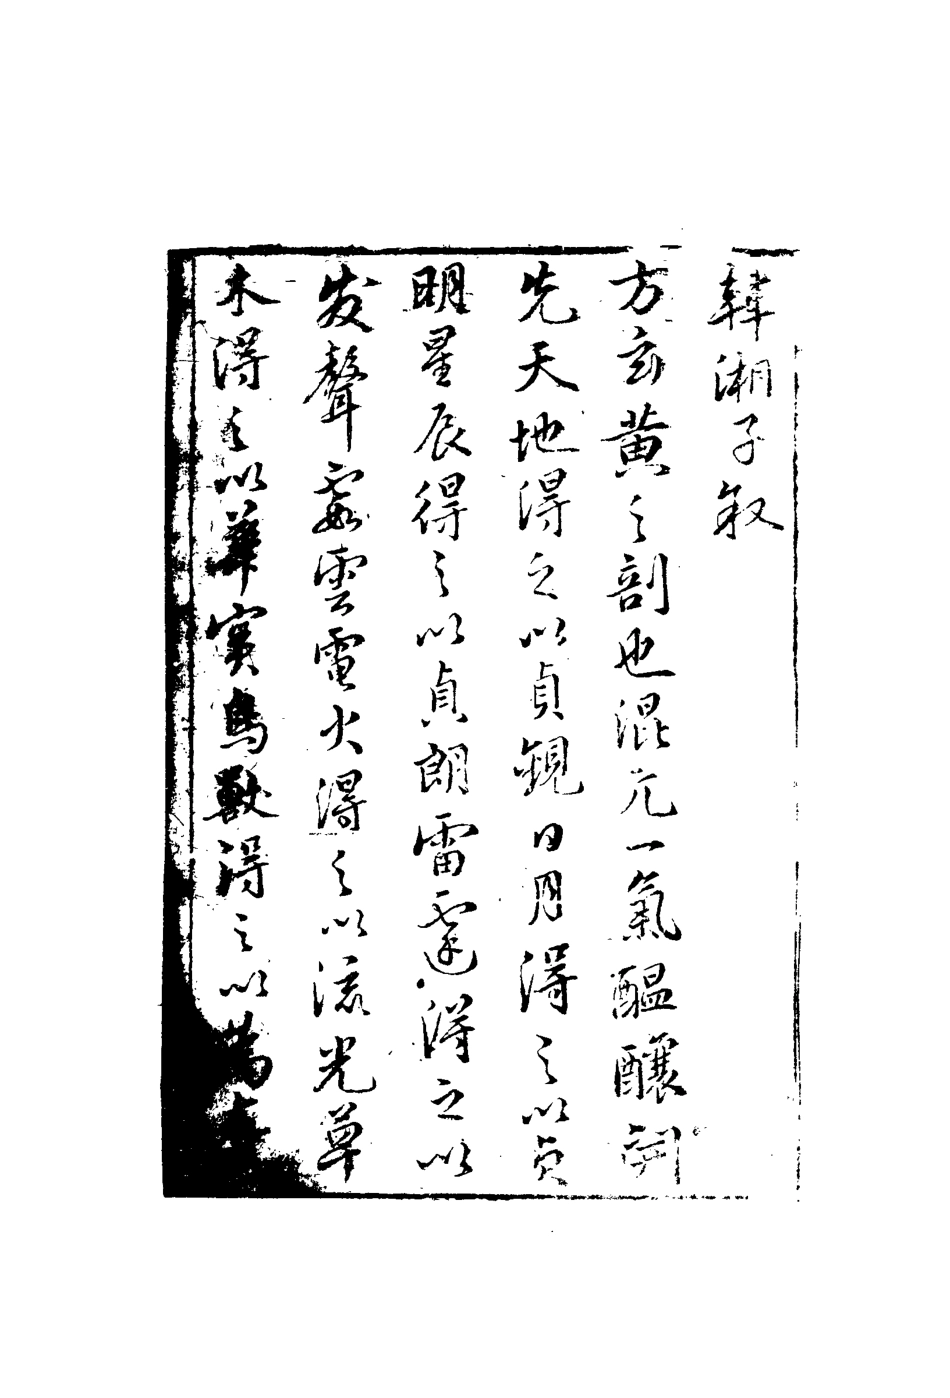 韓湘子叙
方玄黃之剖也混元一氣醖釀
先天地得之以貞觀日月得之以貞
明星辰得之以貞朗雷霆得之以
发聲霞雲電火得之以流光草
木得之以華實鳥獸得之以